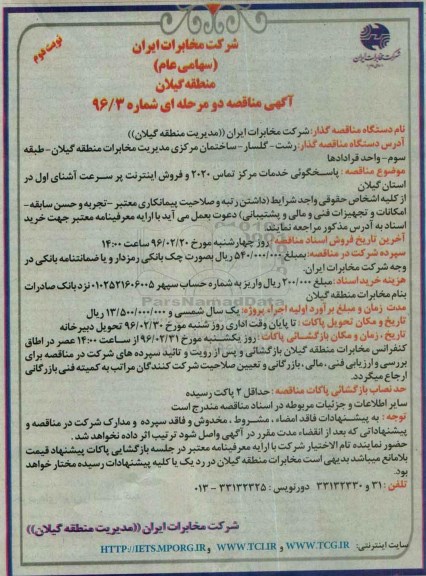 شرکت مخابرات ایران
نوبت دوم
شرکت مخابرات ایران
(سهامی عام)
منطقه گیلان
آگهی مناقصه دو مرحله ای شماره ۹۶/۳
نام دستگاه مناقصه گذار: شرکت مخابرات ایران ((مدیریت منطقه گیلان))
آدرس دستگاه مناقصه گذار: رشت - گلسار - ساختمان مرکزی مدیریت مخابرات منطقه گیلان - طبقه
سوم - واحد قرادادها
موضوع مناقصه: پاسخگوئی خدمات مرکز تماس ۲۰۲۰ و فروش اینترنت پر سرعت آشنای اول در
استان گیلان
از کلیه اشخاص حقوقی واجد شرایط (داشتن رتبه و صلاحیت پیمانکاری معتبر - تجربه و حسن سابقه -
امکانات و تجهیزات فنی و مالی و پشتیبانی) دعوت بعمل می آید با ارایه معرفینامه معتبر جهت خرید
اسناد به آدرس مذکور مراجعه نمایند:
آخرین تاریخ فروش اسناد مناقصه: روز چهارشنبه مورخ ۹۶/۰۲/۲۰ ساعت ۱۴:۰۰
سپرده شرکت در مناقصه: بمبلغ ۵۴۰/۰۰۰/۰۰۰ ریال بصورت چک بانکی رمزدار و یا ضمانتنامه بانکی در
وجه شرکت مخابرات ایران.
هزینه خرید اسناد: مبلغ ۲۰۰/۰۰۰ ریال واریز به شماره حساب سپهر ۰۱۰۲۵۲۱۶۰۶۰۰۵ نزد بانک صادرات
بنام مخابرات منطقه گیلان
مدت زمان و مبلغ برآورد اولیه اجراء پروژه: یک سال شمسی و ۱۳/۵۰۰/۰۰۰/۰۰۰ ریال
تاریخ و مکان تحویل پاکات: تا پایان وقت اداری روز شنبه مورخ ۹۶/۰۲/۳۰ تحویل دبیرخانه
تاریخ، زمان و مکان بازگشائی پاکات: روز یکشنبه مورخ ۹۶/۰۲/۳۱ از ساعت ۱۴:۰۰ عصر در اطاق
کنفرانس مخابرات منطقه گیلان بازگشائی و پس از رویت و تائید سپرده های شرکت در مناقصه برای
بررسی و ارزیابی فنی، مالی، بازرگانی و تعیین صلاحیت شرکت کنندگان مراتب به کمیته فنی بازرگانی
ارجاع میگردد.
حد نصاب بازگشائی پاکات مناقصه: حداقل ۲ پاکت رسیده
سایر اطلاعات و جزئیات مربوطه در اسناد مناقصه مندرج است
توجه: به پیشنهادات فاقد امضاء، مشروط، مخدوش و فاقد سپرده و مدارک شرکت در مناقصه و
پیشنهاداتی که بعد از انقضاء مدت مقرر در آگهی واصل شود ترتیب اثر داده نخواهد شد.
حضور نماینده تام الاختیار شرکت با ارایه معرفینامه معتبر در جلسه بازگشایی پاکات پیشنهاد قیمت
بلامانع میباشد بدیهی است مخابرات منطقه گیلان در رد یک یا کلیه پیشنهادات رسیده مختار خواهد
بود.
تلفن: ۳۱ و ۳۳۱۳۲۳۳۰ دورنویس: ۳۳۱۳۲۳۲۵ - ۰۱۳
شرکت مخابرات ایران ((مدیریت منطقه گیلان))
سایت اینترنتی: WWW.TCG.IR و WWW.TCI.IR و HTTP://IETS.MPORG.IR